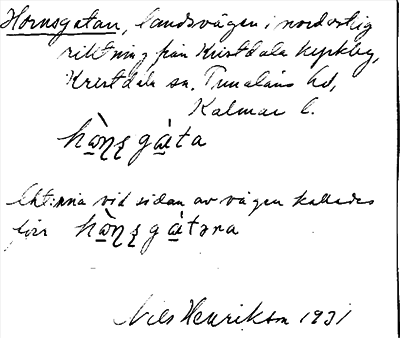 Hornsgatan, landsvägen i nordostlig
riktning från Kristdala kyrkby,
Kristdala sn. Tunaläns hd,
Kalmar l.
hὰɳʂ gὰta
vid sidan av vägen kallades
förr hὰɳʂ gὰtəna
Nils Henrikson 1931